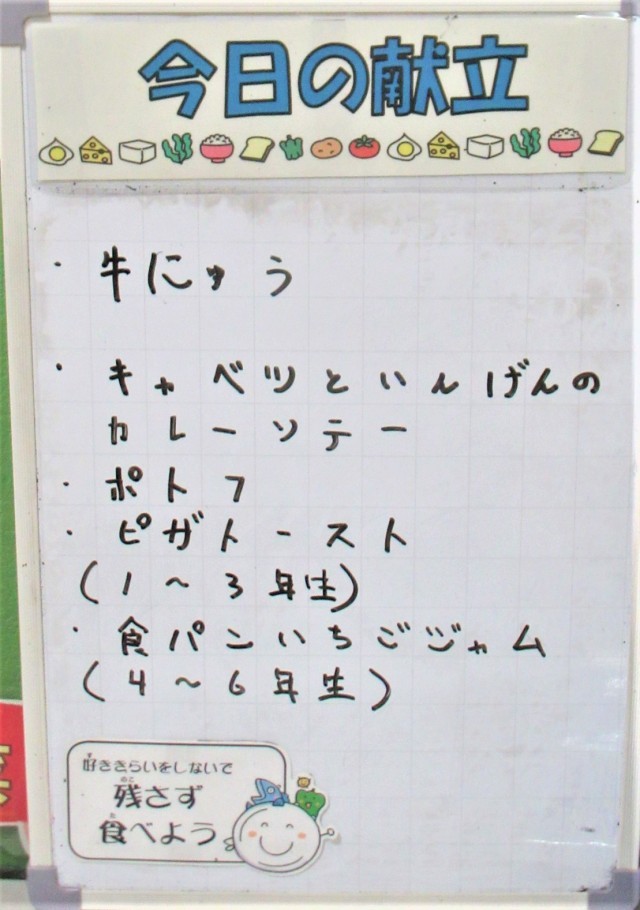 今日の献立
・牛にゅう
・キャベツといんげんの
カレーソテー
・ポトフ
・ピザトースト
(1～3年生)
・食パンいちごジャム
(4～6年生)
好ききらいをしないで
残さず
食べよう